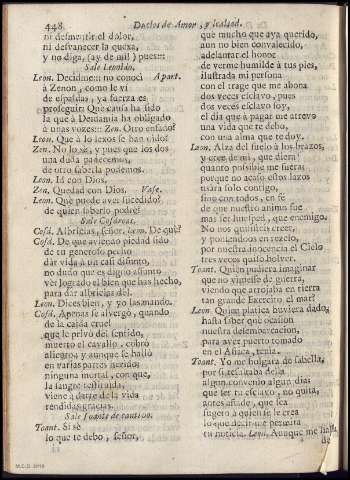 448 Duelos de Amor, y lealtad.
ni desmentir el dolor,
ni desvanecer la quexa,
y no diga, (ay de mi!) pues:::
Sale Leonido.
Leon. Decidme::: no conocí Apart.
à Zenon, como le ví
de espaldas, ya fuerza es
proseguir: Què causa ha sido
la que à Deidamia ha obligado
à unas vozes::: Zen. Otro enfado!
Leon. Que à lo lexos se han oìdo?
Zen. No lo sè, y pues que los dos
una duda padecemos,
de otro saberla podemos.
Leon. Id con Dios.
Zen. Quedad con Dios. Vase.
Leon. Què puede aver sucedido?
de quien saberlo podrè?
Sale Cosdroas.
Cosd. Albricias, señor. Leon. De què?
Cosd. De que aviendo piedad sido
de tu generoso pecho
dar vida à un casi difunto,
no dudo que es digno assunto
ver logrado el bien que has hecho,
para dar albricias del.
Leon. Dices bien, y yo las mando.
Cosd. Apenas se alvergò, quando
de la caìda cruel
que le privò del sentido,
muerto el cavallo, cobrò
alientos, y aunque se hallò
en varias partes herido,
ninguna mortal, con que,
la sangre restituida,
viene à darte de la vida
rendidas gracias.
Sale Toante de cautivo.
Toant. Si sè
lo que te debo, señor,
què mucho que aya querido,
aun no bien convalecido,
adelantar el honor
de verme humilde à tus pies,
ilustrada mi persona
con el trage que me abona
dos veces esclavo, pues
dos veces esclavo soy,
el dia que à pagar me atrevo
una vida que te debo,
con una alma que te doy.
Leon. Alza del suelo à los brazos,
y cree de mi, que diera
quanto possible me fuera,
porque no acaso estos lazos
usàra solo contigo,
sino con todos, en fè
de que nuestro animo fue
mas ser huesped, que enemigo.
No nos quisisteis creer,
y poniendoos en rezelo,
por nuestra inocencia el Cielo
tres veces quiso bolver.
Toant. Quien pudiera imaginar
que no viniesse de guerra,
viendo que arrojaba en tierra
tan grande Exercito el mar?
Leon. Quien platica huviera dado,
hasta saber què ocasion
nuestra desembarcacion,
para aver puerto tomado
en el Assica, tenia.
Toant. Yo me holgàra de saberla,
por si resultaba della
algun convenio algun dia:
que ser tu esclavo, no quita,
antes añade, que sea
sugeto à quien se le crea
lo que decir me permita
tu noticia. Leon. Aunque me halla
de